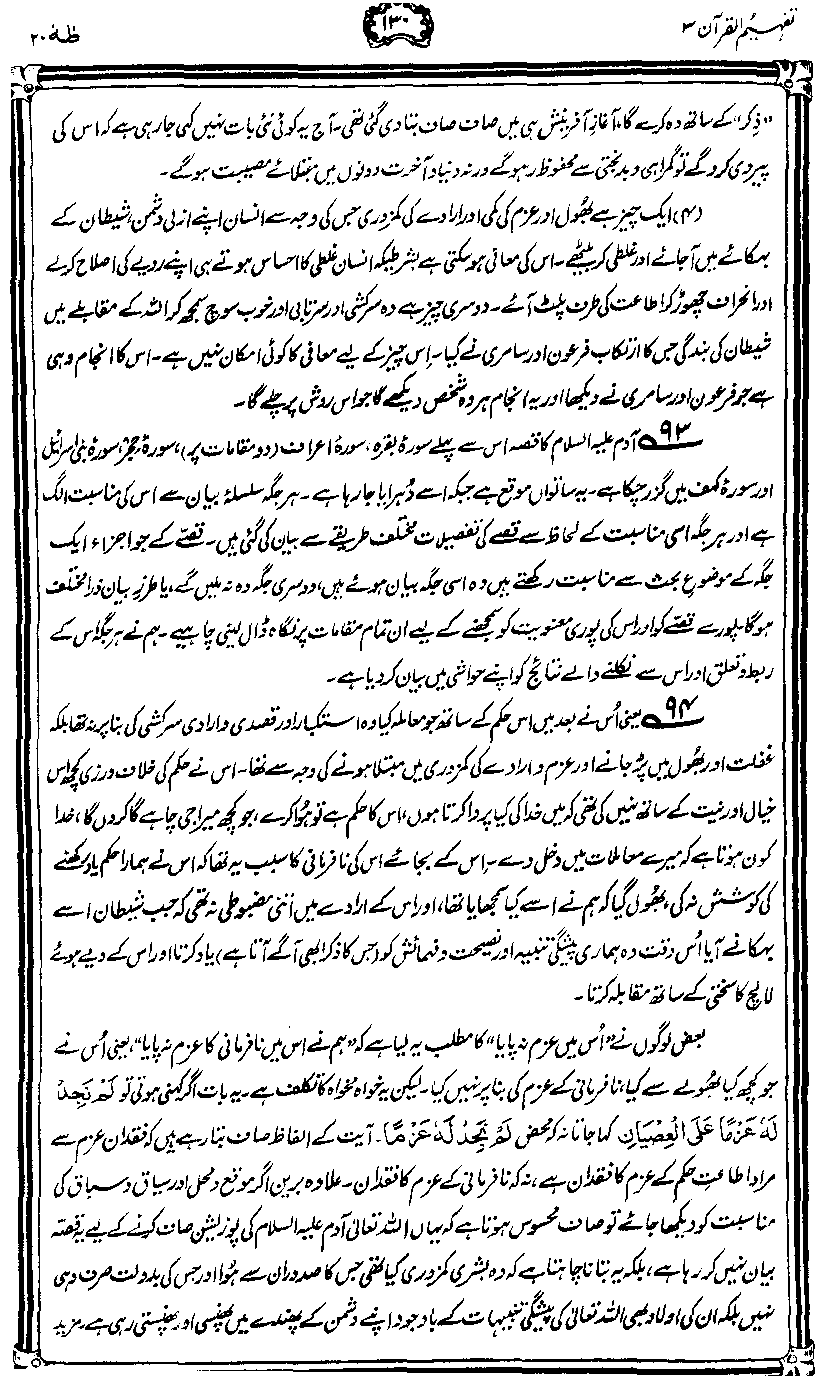 تفہیم القرآن ۳
۱۳۰
طٰہٰ ۲۰
”ذکر“ کے ساتھ وہ کرے گا، آغازِ آفرینش ہی میں صاف صاف بتا دی گئی تھی۔ آج یہ کوئی نئی بات نہیں کہی جا رہی ہے کہ اس کی
پیروی کرو گے تو گمراہی و بدبختی سے محفوظ رہو گے ورنہ دنیا و آخرت دونوں میں مبتلائے مصیبت ہو گے۔
(۴) ایک چیز ہے بھول اور عزم کی کمی اور ارادے کی کمزوری جس کی وجہ سے انسان اپنے ازلی دشمن، شیطان کے
بہکائے میں آ جائے اور غلطی کر بیٹھے۔ اس کی معافی ہو سکتی ہے بشرطیکہ انسان غلطی کا احساس ہوتے ہی اپنے رویے کی اصلاح کر لے
اور انحراف چھوڑ کر اطاعت کی طرف پلٹ آئے۔ دوسری چیز ہے وہ سرکشی اور سرتابی اور خوب سوچ سمجھ کر اللہ کے مقابلے میں
شیطان کی بندگی جس کا ارتکاب فرعون اور سامری نے کیا۔ اِس چیز کے لیے معافی کا کوئی امکان نہیں ہے۔ اس کا انجام وہی
ہے جو فرعون اور سامری نے دیکھا اور یہ انجام ہر وہ شخص دیکھے گا جو اس روش پر چلے گا۔
۹۳ آدم علیہ السلام کا قصہ اس سے پہلے سورۂ بقرہ، سورۂ اعراف (دو مقامات پر)، سورۂ حِجر، سورۂ بنی اسرائیل
اور سورۂ کہف میں گزر چکا ہے۔ یہ ساتواں موقع ہے جبکہ اسے دُہرایا جا رہا ہے۔ ہر جگہ سلسلۂ بیان سے اس کی مناسبت الگ
ہے اور ہر جگہ اسی مناسبت کے لحاظ سے قصے کی تفصیلات مختلف طریقے سے بیان کی گئی ہیں۔ قصے کے جو اجزاء ایک
جگہ کے موضوعِ بحث سے مناسبت رکھتے ہیں وہ اسی جگہ بیان ہوئے ہیں، دوسری جگہ وہ نہ ملیں گے، یا طرزِ بیان ذرا مختلف
ہو گا۔ پورے قصے کو اور اس کی پوری معنویت کو سمجھنے کے لیے ان تمام مقامات پر نگاہ ڈال لینی چاہیے۔ ہم نے ہر جگہ اس کے
ربط و تعلق اور اس سے نکلنے والے نتائج کو اپنے حواشی میں بیان کر دیا ہے۔
۹۴ یعنی اُس نے بعد میں اس حکم کے ساتھ جو معاملہ کیا وہ استکبار اور قصدی و ارادی سرکشی کی بنا پر نہ تھا بلکہ
غفلت اور بھول میں پڑ جانے اور عزم و ارادے کی کمزوری میں مبتلا ہونے کی وجہ سے تھا۔ اس نے حکم کی خلاف ورزی کچھ اس
خیال اور نیت کے ساتھ نہیں کی تھی کہ میں خدا کی کیا پروا کرتا ہوں، اس کا حکم ہے تو ہوا کرے، جو کچھ میرا جی چاہے گا کروں گا، خدا
کون ہوتا ہے کہ میرے معاملات میں دخل دے۔ اس کے بجائے اس کی نافرمانی کا سبب یہ تھا کہ اس نے ہمارا حکم یاد رکھنے
کی کوشش نہ کی، بھول گیا کہ ہم نے اسے کیا سمجھایا تھا، اور اس کے ارادے میں اتنی مضبوطی نہ تھی کہ جب شیطان اسے
بہکانے آیا اُس وقت وہ ہماری پیشگی تنبیہ اور نصیحت و فہمائش کو (جس کا ذکر ابھی آگے آتا ہے) یاد کرتا اور اس کے دیے ہوئے
لالچ کا سختی کے ساتھ مقابلہ کرتا۔
بعض لوگوں نے ”اُس میں عزم نہ پایا“ کا مطلب یہ لیا ہے کہ ”ہم نے اس میں نافرمانی کا عزم نہ پایا“، یعنی اُس نے
جو کچھ کیا بھولے سے کیا، نافرمانی کے عزم کی بنا پر نہیں کیا۔ لیکن یہ خواہ مخواہ کا تکلف ہے۔ یہ بات اگر کہنی ہوتی تو لَمْ نَجِدْ
لَهٗ عَزْمًا عَلَی الْعِصْیَانِ کہا جاتا نہ کہ محض لَمْ نَجِدْ لَهٗ عَزْمًا۔ آیت کے الفاظ صاف بتا رہے ہیں کہ فقدانِ عزم سے
مراد اطاعتِ حکم کے عزم کا فقدان ہے، نہ کہ نافرمانی کے عزم کا فقدان۔ علاوہ بریں اگر موقع و محل اور سیاق و سباق کی
مناسبت کو دیکھا جائے تو صاف محسوس ہوتا ہے کہ یہاں اللہ تعالیٰ آدم علیہ السلام کی پوزیشن صاف کرنے کے لیے یہ قصہ
بیان نہیں کر رہا ہے، بلکہ یہ بتانا چاہتا ہے کہ وہ بشری کمزوری کیا تھی جس کا صدور ان سے ہوا اور جس کی بدولت صرف وہی
نہیں بلکہ ان کی اولاد بھی اللہ تعالیٰ کی پیشگی تنبیہات کے باوجود اپنے دشمن کے پھندے میں پھنسی اور پھنستی رہی ہے۔ مزید